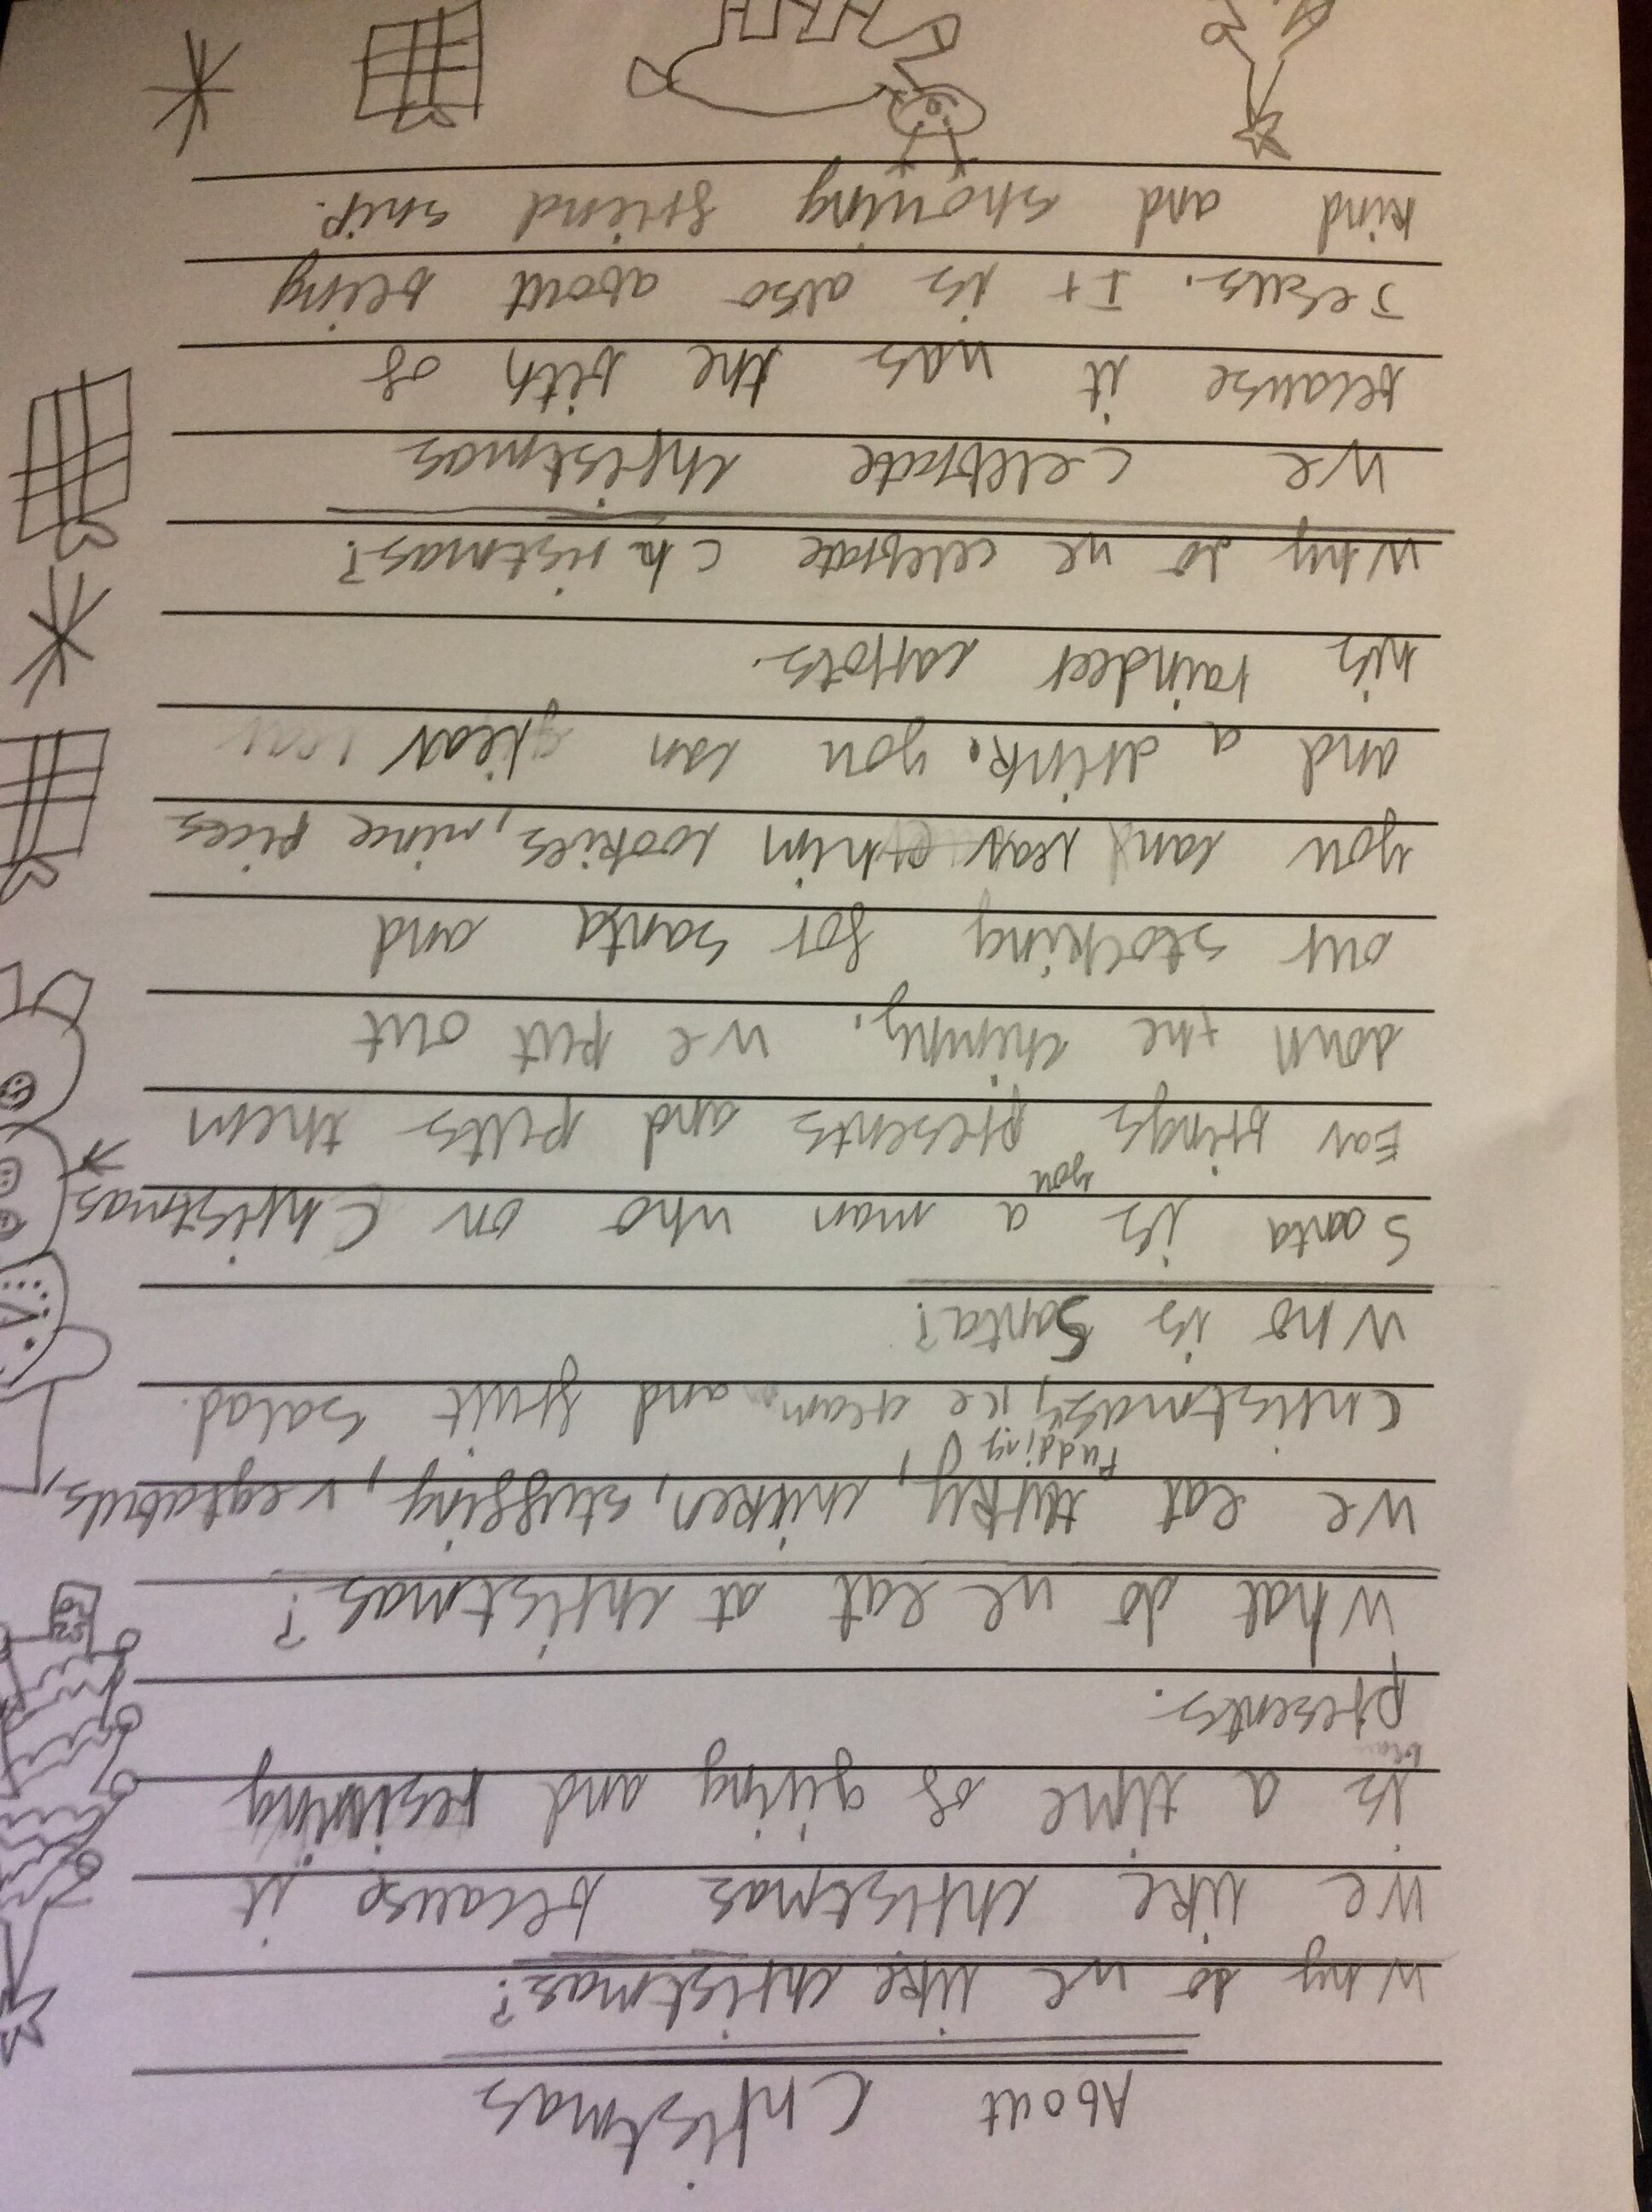 About Christmas
Why do we like christmas?
We like christmas because it
is a time of giving and resiving
presents.
What do we eat at christmas?
We eat turky, chiken, stuffing, vegtabuls,
Christmas pudding, ice cream and fruit salad.
Who is Santa?
Santa is a man who on Christmas
Eav brings you presents and puts them
down the chimny. We put out
our stocking for santa and
you can leav him cookies, mince pices
and a drink. you can leav
his raindeer carrots.
Why do we celebrate christmas?
We celebrate christmas
because it was the bith of
Jesus. It is also about being
kind and showing friend ship.